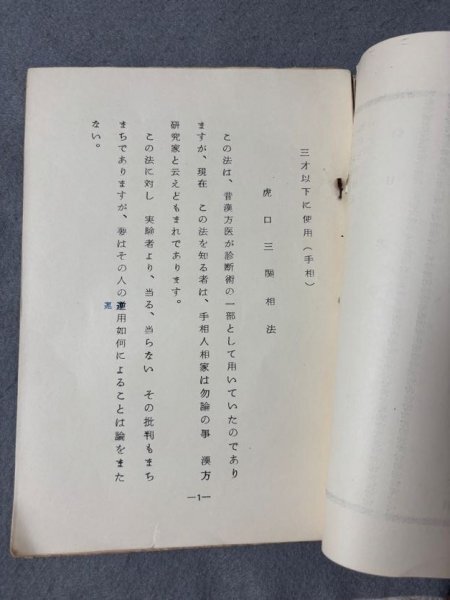 三才以下に使用(手相)
虎口三関相法
この法は、昔漢方医が診断術の一部として用いていたのであり
ますが、現在 この法を知る者は、手相人相家は勿論の事 漢方
研究家と云えどもまれであります。
この法に対し 実験者より、当る、当らない その批判もまち
まちでありますが、要はその人の運用如何によることは論をまた
運
ない。
—1—